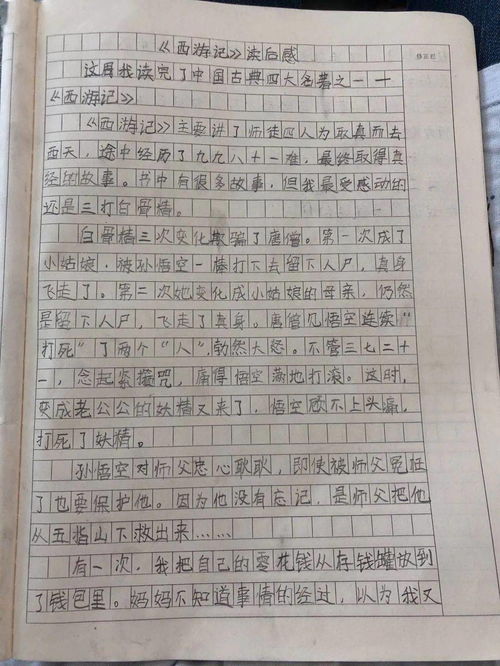 《西游记》读后感
这周我读完了中国古典四大名著之一一
《西游记》
《西游记》主要讲了师徒四人为取真而去
西天，途中经历了九九八十一难，最终取得真
经的故事。书中有很多故事，但我最受感动的
还是三打白骨精。
白骨精三次变化欺骗了唐僧。第一次成了
小姑娘，被孙悟空一棒打下去留下人尸，真身
飞走了。第二次她变化成小姑娘的母亲，仍然
是留下人尸，飞走了真身。唐僧见悟空连续"
打死"了两个"人"，勃然大怒。不管三七二十
一，念起紧箍咒，痛得悟空满地打滚。这时，
变成老公公的妖精又来了，悟空顾不上头痛，
打死了妖精。
孙悟空对师父忠心耿耿，即使被师父冤枉
了也要保护他。因为他没有忘记，是师父把他
从五指山下救出来……
有一次，我把自己的零花钱从存钱罐放到
了钱包里。妈妈不知道事情的经过，以为我又